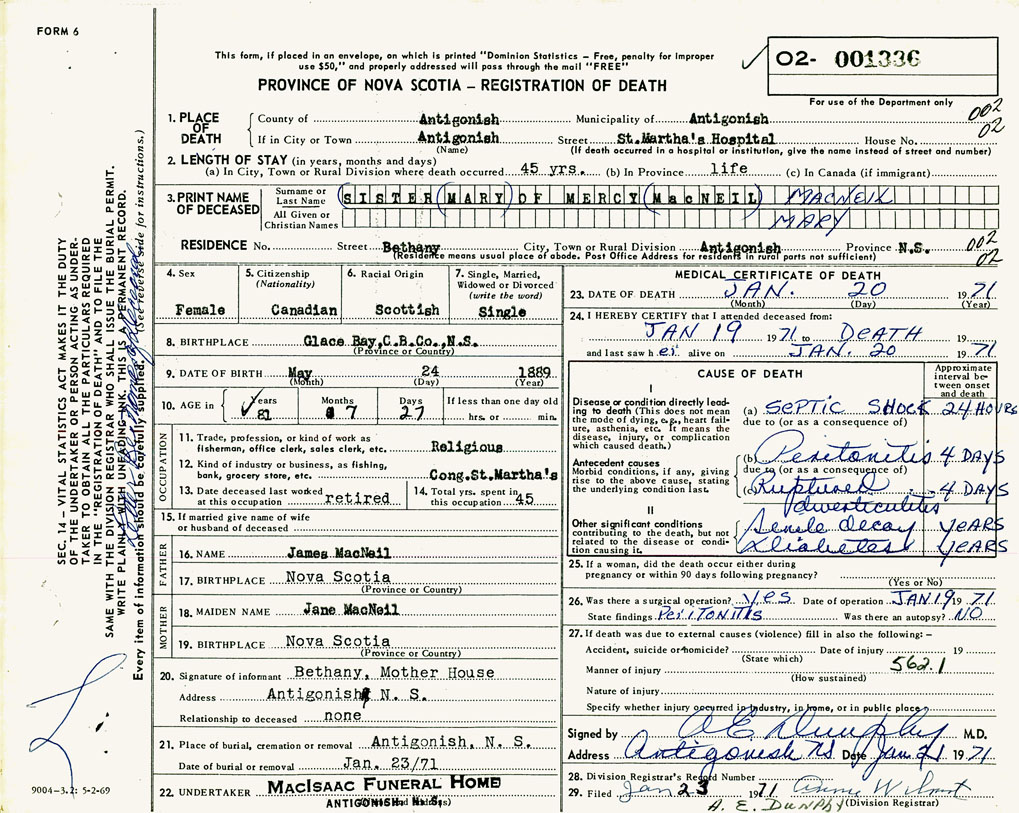 FORM 6
This form, if placed in an envelope, on which is printed "Dominion Statistics – Free, penalty for improper
use $50," and properly addressed will pass through the mail "FREE"
02- 001336
PROVINCE OF NOVA SCOTIA – REGISTRATION OF DEATH
For use of the Department only
002
02
1. PLACE OF DEATH
County of Antigonish Municipality of Antigonish
If in City or Town Antigonish Street St.Martha's Hospital House No.
(Name) (If death occurred in a hospital or institution, give the name instead of street and number)
2. LENGTH OF STAY (in years, months and days)
(a) In City, Town or Rural Division where death occurred 45 yrs. (b) In Province life (c) In Canada (if immigrant)
3. PRINT NAME OF DECEASED
Surname or Last Name SISTER (MARY) OF MERCY (MacNEIL) MACNEIL
All Given or Christian Names MARY
RESIDENCE No. Street Bethany City, Town or Rural Division Antigonish Province N.S.
(Residence means usual place of abode. Post Office Address for residents in rural parts not sufficient)
002
02
4. Sex
Female
5. Citizenship (Nationality)
Canadian
6. Racial Origin
Scottish
7. Single, Married, Widowed or Divorced (write the word)
Single
8. BIRTHPLACE Glace Bay,C.B.Co.,N.S.
(Province or Country)
9. DATE OF BIRTH May 24 1889
(Month) (Day) (Year)
10. AGE in Years Months Days If less than one day old
81 7 27 hrs. or min.
OCCUPATION
11. Trade, profession, or kind of work as
fisherman, office clerk, sales clerk, etc. Religious
12. Kind of industry or business, as fishing,
bank, grocery store, etc. Cong.St.Martha's
13. Date deceased last worked
at this occupation retired
14. Total yrs. spent in
this occupation 45
15. If married give name of wife
or husband of deceased
FATHER
16. NAME James MacNeil
17. BIRTHPLACE Nova Scotia
(Province or Country)
MOTHER
18. MAIDEN NAME Jane MacNeil
19. BIRTHPLACE Nova Scotia
(Province or Country)
20. Signature of informant Bethany, Mother House
Address Antigonish N. S.
Relationship to deceased none
21. Place of burial, cremation or removal Antigonish, N. S.
Date of burial or removal Jan. 23/71
22. UNDERTAKER MacISAAC FUNERAL HOME
ANTIGONISH, N. S.
MEDICAL CERTIFICATE OF DEATH
23. DATE OF DEATH JAN. 20 1971
(Month) (Day) (Year)
24. I HEREBY CERTIFY that I attended deceased from:
JAN 19 1971 to DEATH 19
and last saw her alive on JAN. 20 1971
CAUSE OF DEATH
Approximate interval between onset and death
I
Disease or condition directly leading to death (This does not mean the mode of dying, e.g., heart failure, asthenia, etc. It means the disease, injury, or complication which caused death.)
(a) SEPTIC SHOCK 24 HOURS
due to (or as a consequence of)
Antecedent causes
Morbid conditions, if any, giving rise to the above cause, stating the underlying condition last.
(b) Peritonitis 4 DAYS
due to (or as a consequence of)
(c) Ruptured 4 DAYS
diverticulitis
II
Other significant conditions contributing to the death, but not related to the disease or condition causing it.
Senile decay YEARS
Diabetes YEARS
25. If a woman, did the death occur either during
pregnancy or within 90 days following pregnancy?
(Yes or No)
26. Was there a surgical operation? Yes Date of operation JAN 19 1971
State findings PERITONITIS Was there an autopsy? NO
27. If death was due to external causes (violence) fill in also the following: –
Accident, suicide or homicide? Date of injury 19
(State which)
562.1
Manner of injury
(How sustained)
Nature of injury
Specify whether injury occurred in industry, in home, or in public place
Signed by A E Dunphy M.D.
Address Antigonish NS Date Jan 21 1971
28. Division Registrar's Record Number
29. Filed Jan 23 1971
A. E. DUNPHY (Division Registrar)
SEC. 14 – VITAL STATISTICS ACT MAKES IT THE DUTY
OF THE UNDERTAKER OR PERSON ACTING AS UNDER-
TAKER TO OBTAIN ALL THE PARTICULARS REQUIRED
IN THE "REGISTRATION OF DEATH" AND TO FILE THE
SAME WITH THE DIVISION REGISTRAR WHO SHALL ISSUE THE BURIAL PERMIT.
WRITE PLAINLY WITH UNFADING INK. THIS IS A PERMANENT RECORD.
Every item of information should be carefully supplied. (See reverse side for instructions.)
9004-3.2: 5-2-69